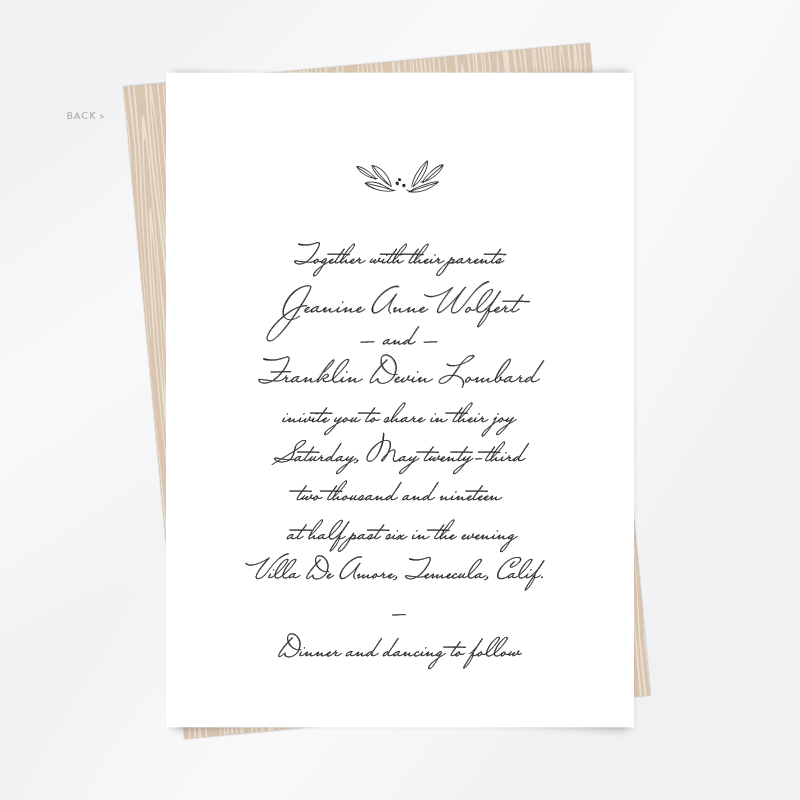 BACK >
Together with their parents
Jeanine Anne Wolfert
— and —
Franklin Devin Lombard
inivite you to share in their joy
Saturday, May twenty-third
two thousand and nineteen
at half past six in the evening
Villa De Amore, Temecula, Calif.
—
Dinner and dancing to follow